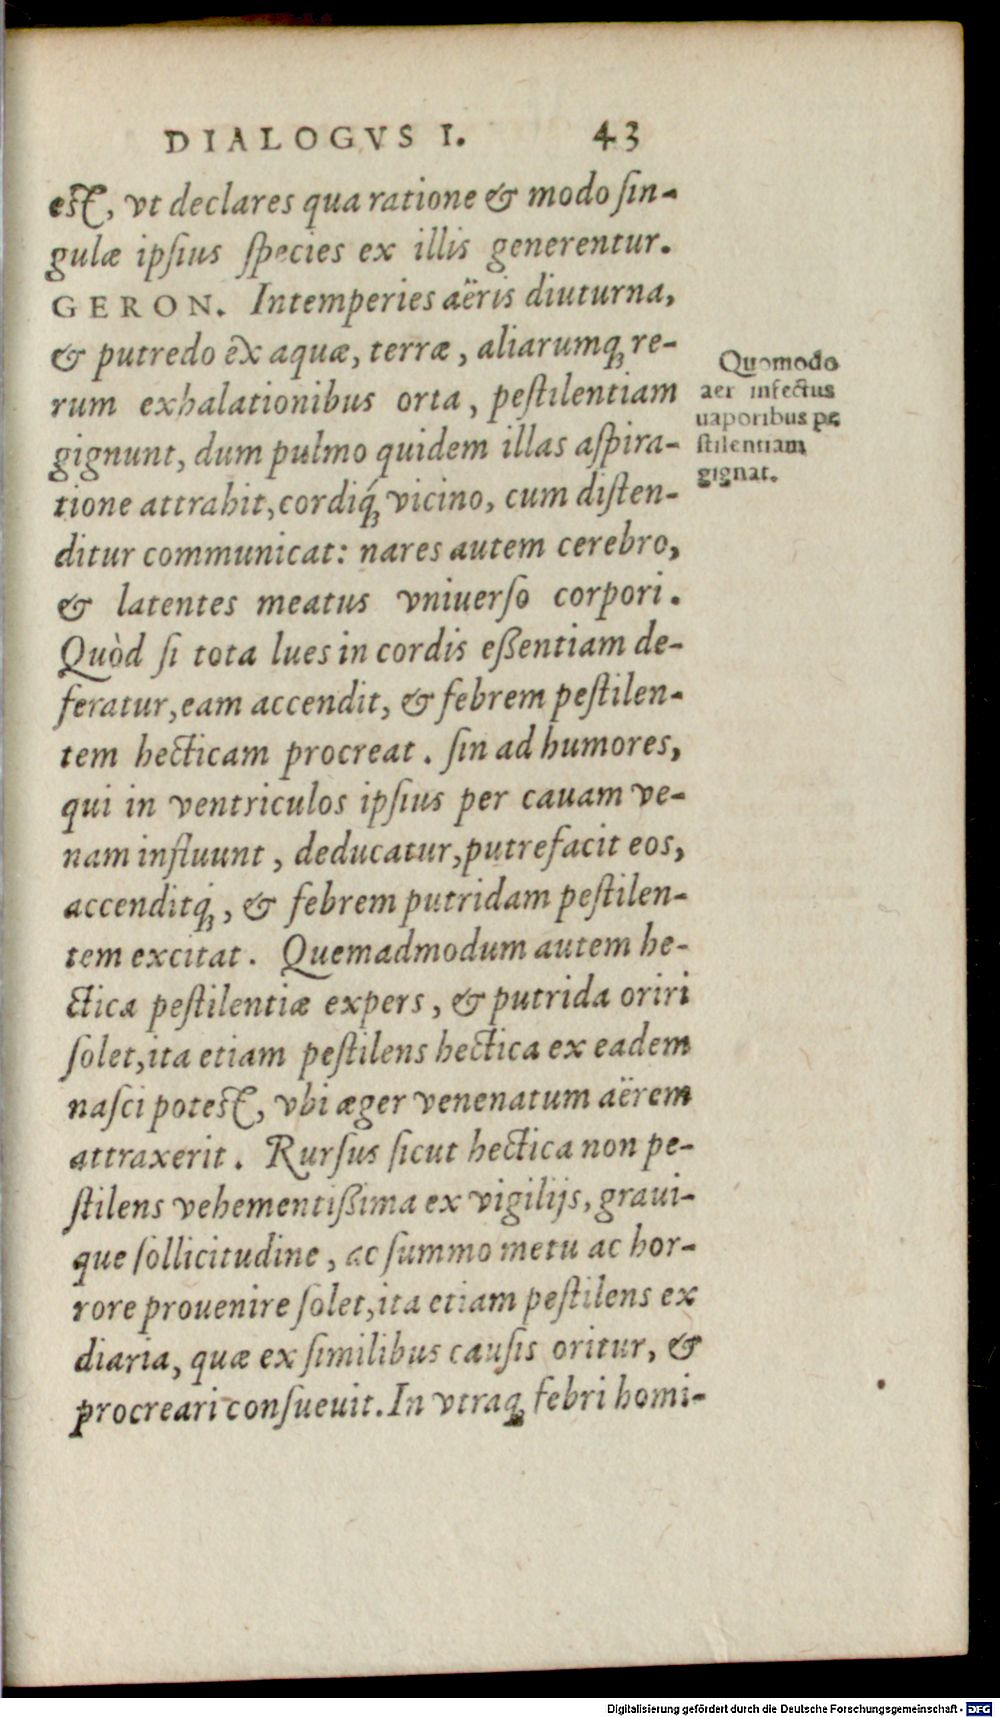 DIALOGVS I. 43
est, vt declares qua ratione & modo ſin-
gulæ ipſius ſpecies ex illis generentur.
GERON. Intemperies aëris diuturna,
& putredo ex aquæ, terræ, aliarumq́ꝫ re-
rum exhalationibus orta, peſtilentiam
gignunt, dum pulmo quidem illas aſpira-
tione attrahit, cordiq́ꝫ vicino, cum diſten-
ditur communicat: nares autem cerebro,
& latentes meatus vniuerſo corpori.
Quòd ſi tota lues in cordis eßentiam de-
feratur, eam accendit, & febrem peſtilen-
tem hecticam procreat. ſin ad humores,
qui in ventriculos ipſius per cauam ve-
nam influunt, deducatur, putrefacit eos,
accenditq́ꝫ, & febrem putridam peſtilen-
tem excitat. Quemadmodum autem he-
ctica peſtilentiæ expers, & putrida oriri
ſolet, ita etiam peſtilens hectica ex eadem
naſci potest, vbi æger venenatum aërem
attraxerit. Rurſus ſicut hectica non pe-
ſtilens vehementißima ex vigilijs, graui-
que ſollicitudine, ac ſummo metu ac hor-
rore prouenire ſolet, ita etiam peſtilens ex
diaria, quæ ex ſimilibus cauſis oritur, &
procreari conſueuit. In vtraqꝫ febri homi-
Quomodo
aer infectus
uaporibus pe
ſtilentiam
gignat.
Digitalisierung gefördert durch die Deutsche Forschungsgemeinschaft - DFG